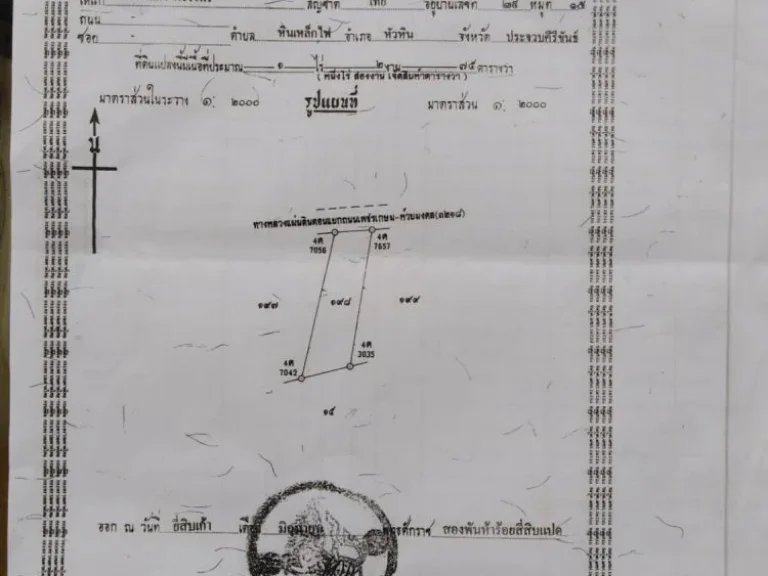 สัญชาติ ไทย อยู่บ้านเลขที่ หมู่ที่ ๑๕
ถนน -
ซอย - ตำบล หินเหล็กไฟ อำเภอ หัวหิน จังหวัด ประจวบคีรีขันธ์
ที่ดินแปลงนี้มีเนื้อที่ประมาณ ๑ ไร่ ๒ งาน ๗๕ ตารางวา
( หนึ่งไร่ สองงาน เจ็ดสิบห้าตารางวา )
มาตราส่วนในระวาง ๑: ๒๐๐๐ รูปแผนที่ มาตราส่วน ๑: ๒๐๐๐
น
ทางหลวงแผ่นดินตอนแยกถนนเพชรเกษม-ห้วยมงคล(๓๒๑๘)
4ศ 4ศ
7056 7657
๑๙๗ ๑๙๘ ๑๙๙
4ศ 4ศ
7042 3035
๑๕
ออก ณ วันที่ ยี่สิบเก้า เดือน มิถุนายน พุทธศักราช สองพันห้าร้อยสี่สิบแปด